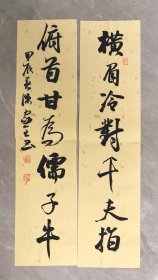 橫眉冷對千夫指
俯首甘為孺子牛
甲辰